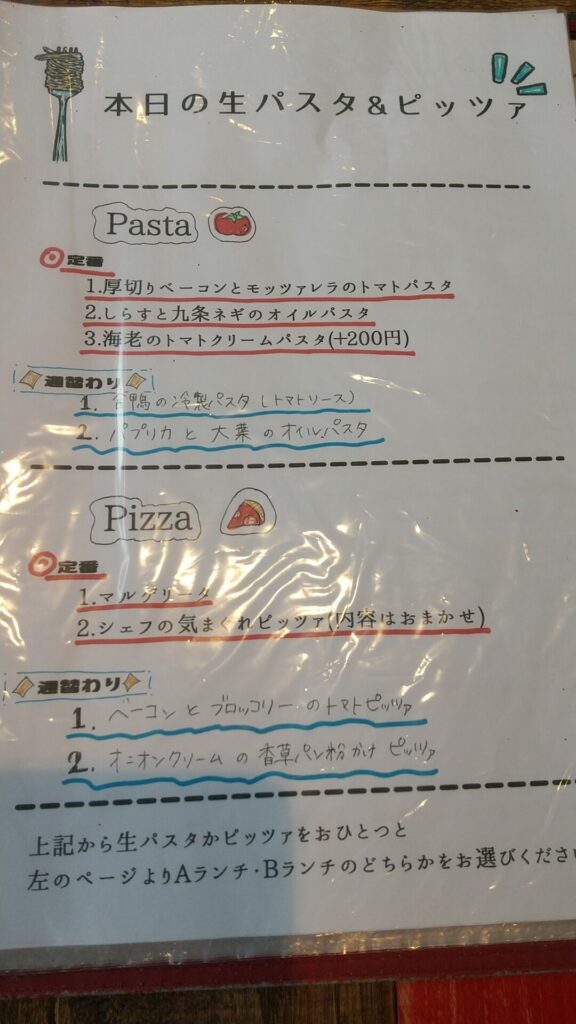 本日の生パスタ&ピッツァ
Pasta
定番
1.厚切りベーコンとモッツァレラのトマトパスタ
2.しらすと九条ネギのオイルパスタ
3.海老のトマトクリームパスタ(+200円)
週替わり
1. 合鴨の冷製パスタ(トマトソース)
2. パプリカと大葉のオイルパスタ
Pizza
定番
1.マルゲリータ
2.シェフの気まぐれピッツァ(内容はおまかせ)
週替わり
1. ベーコンとブロッコリーのトマトピッツァ
2. オニオンクリームの香草パン粉かけピッツァ
上記から生パスタかピッツァをおひとつと
左のページよりAランチ・Bランチのどちらかをお選びくださ